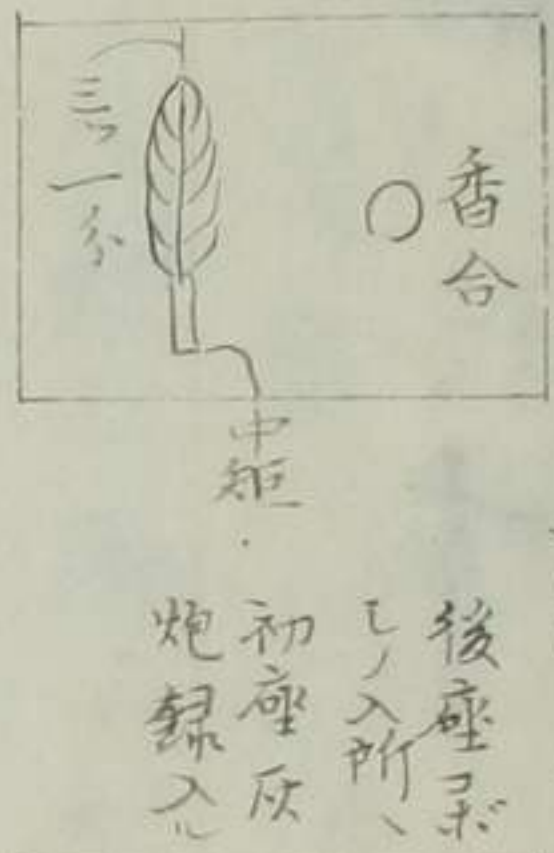 香合
三ツ一分
中矩
後座コボ
シノ入所ヽ
初座灰
炮録入ル